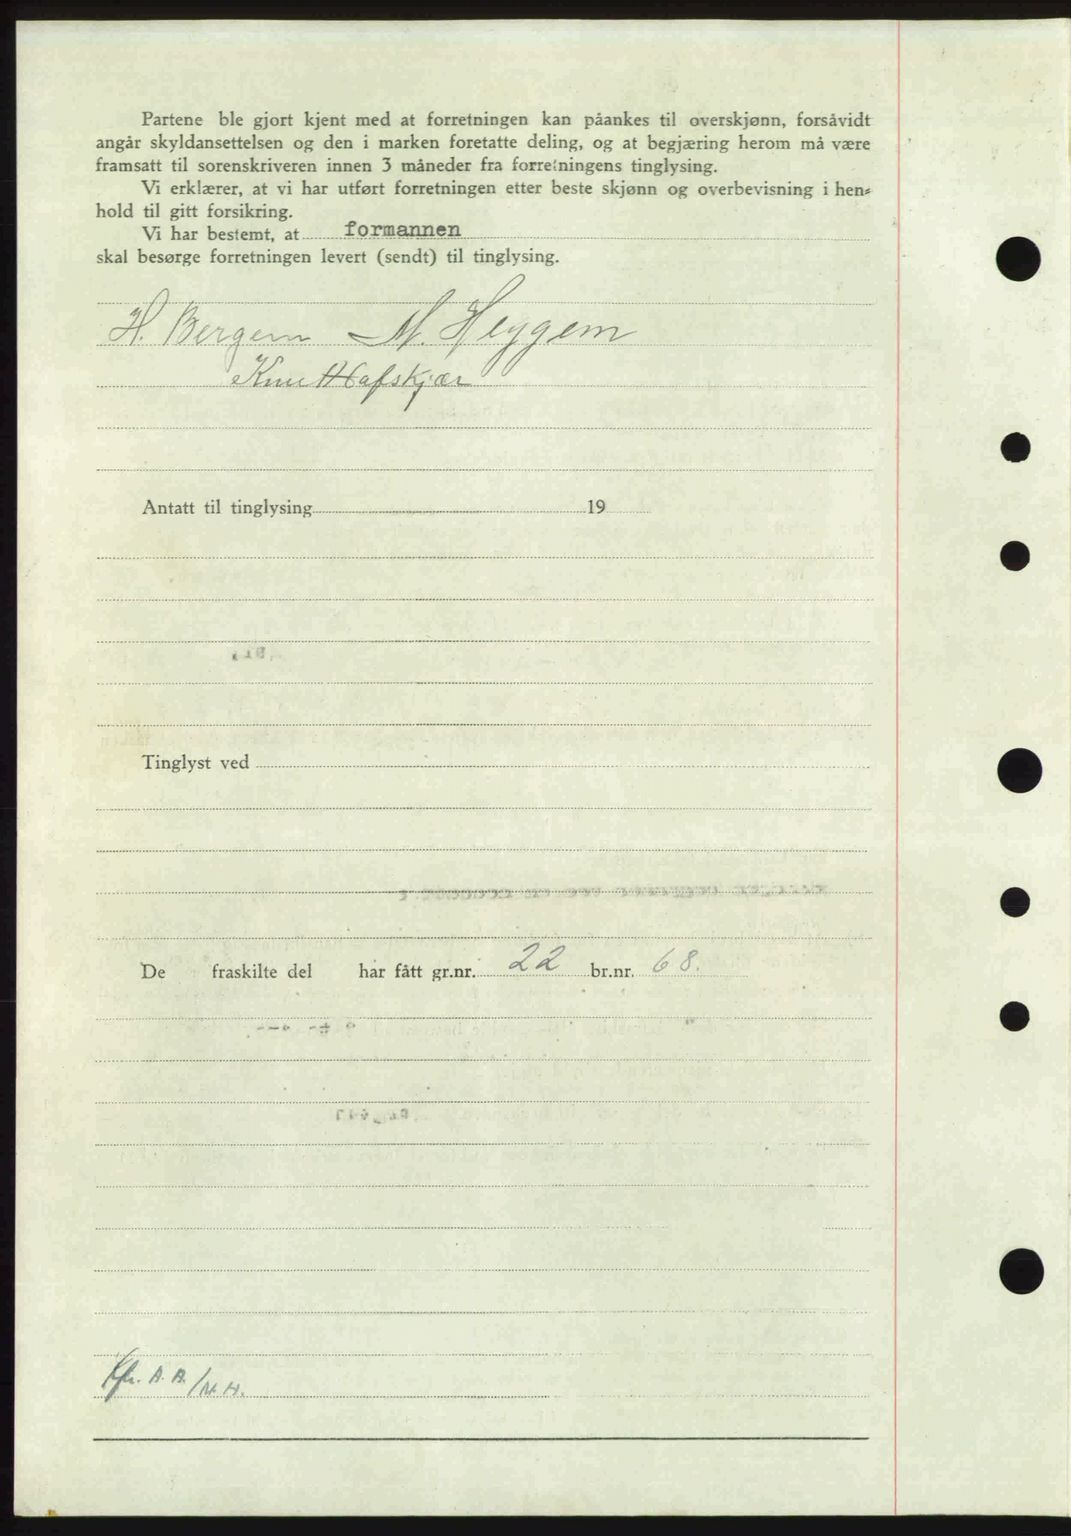 Partene ble gjort kjent med at forretningen kan påankes til overskjønn, forsåvidt
angår skyldansettelsen og den i marken foretatte deling, og at begjæring herom må være
framsatt til sorenskriveren innen 3 måneder fra forretningens tinglysing.
Vi erklærer, at vi har utført forretningen etter beste skjønn og overbevisning i hen-
hold til gitt forsikring.
Vi har bestemt, at formannen
skal besørge forretningen levert (sendt) til tinglysing.
H. Bergem M. Heggem
Knut Hafskjær
Antatt til tinglysing 19
Tinglyst ved
De fraskilte del har fått gr.nr. 22 br.nr. 68.